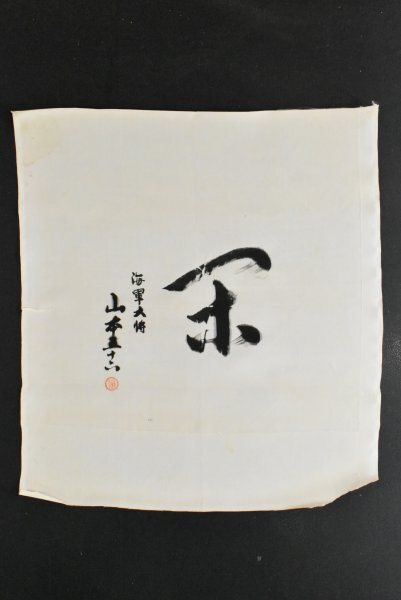 閑
海軍大将
山本五十六